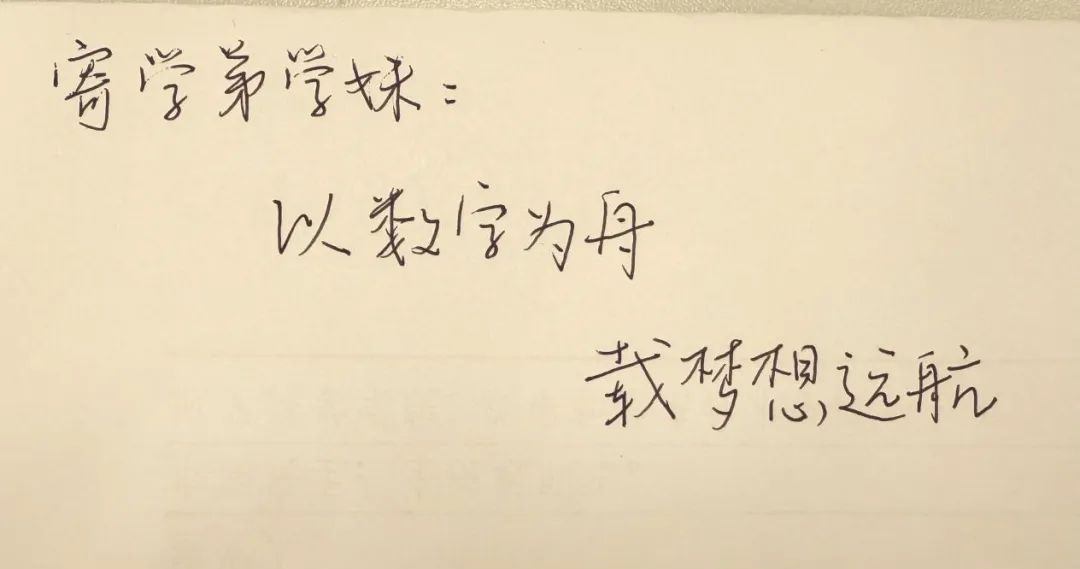 寄学弟学妹：
以数字为舟
载梦想远航